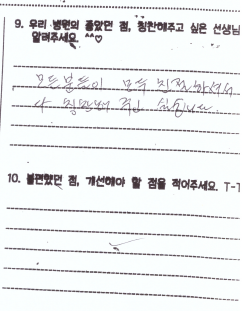 9. 우리 병원의 좋았던 점, 칭찬해주고 싶은 선생님
알려주세요. ^^♡
모든분들이 모두 친절하셔서
다 칭찬해 주고 싶습니다.
10. 불편했던 점, 개선해야 할 점을 적어주세요. T-T